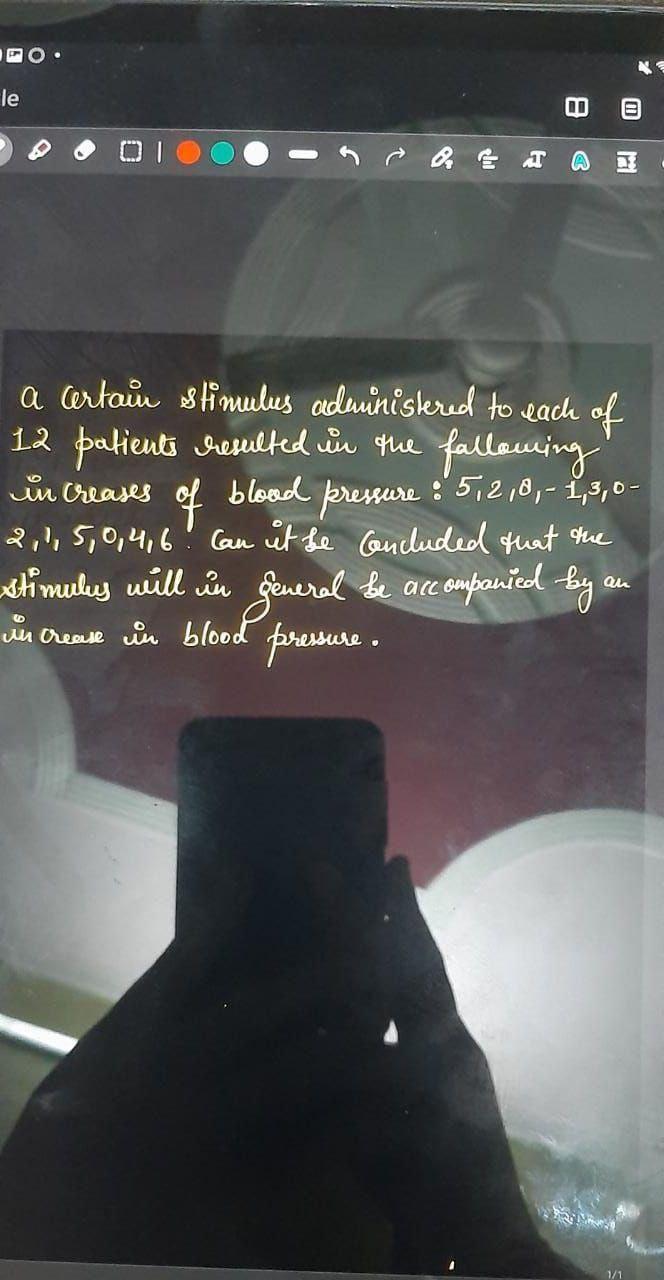 le
a certain stimulus administered to each of
12 patients resulted in the fallowing
increases of blood pressure : 5,2,8,-1,3,0-
2,1, 5,0,4,6. Can it be Concluded that the
stimulus will in general be accompanied by an
increase in blood pressure.
1/1